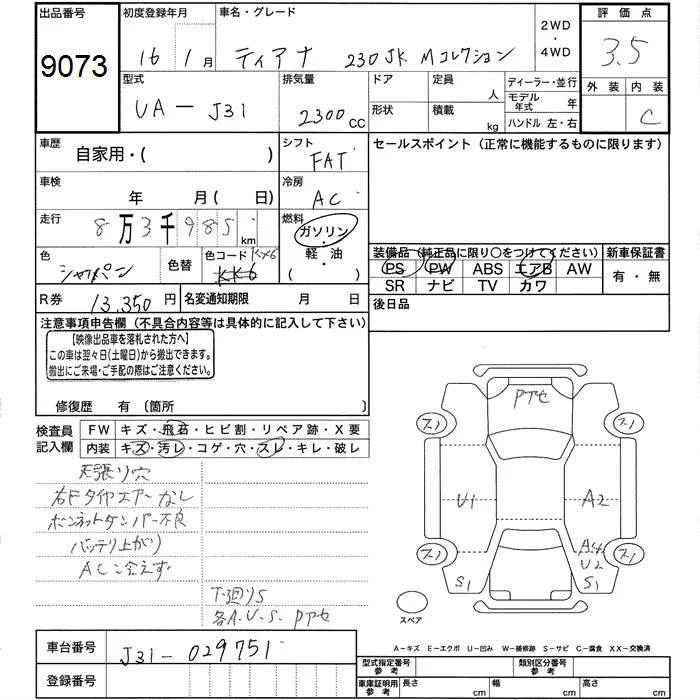 出品番号 初度登録年月 車名・グレード 2WD ・ 4WD 評価点
9073 16 1 月 ティアナ 230JK Mコレクション 3.5
型式 排気量 ドア 定員 人 ディーラー・並行 外装 内装
UA-J31 2300 CC 形状 積載 kg モデル年式 年 C
ハンドル 左・右
車歴 自家用・( ) シフト FAT セールスポイント(正常に機能するものに限ります)
車検 年 月( 日) 冷房 AC
走行 8万3千985 km 燃料 ガソリン・
軽・油
( )
色 シャンパン 色替 色コード KX6 KK6
装備品(純正品に限り〇をつけてください) 新車保証書
PS PW ABS エアB AW 有・無
SR ナビ TV カワ
R券 13,350円 名変通知期限 月 日 後日品
注意事項申告欄(不具合内容等は具体的に記入して下さい)
【映像出品車を落札された方へ】
この車は翌々日(土曜日)から搬出できます。
搬出にご来場・ご手配の際はご注意ください。
修復歴 有 〔箇所 〕
検査員記入欄 FW キズ・飛石・ヒビ割・リペア跡・X要
内装 キズ・汚レ・コゲ・穴・スレ・キレ・破レ
天張り穴
右Fタイヤエアーなし
ボンネットダンパー不良
バッテリ上がり
AC冷えず
下廻りS
各A.U.S. Pアセ
Pアセ
スリ スリ
U1 A2
スリ A4 スリ
U2
S1 S1
スペア
A-キズ E-エクボ U-凹み W-補修跡 S-サビ C-腐食 XX-交換済
車台番号 J31-029751
登録番号
型式指定番号 参考 類別区分番号 参考
車庫証明用 参考 長さ cm 幅 cm 高さ cm